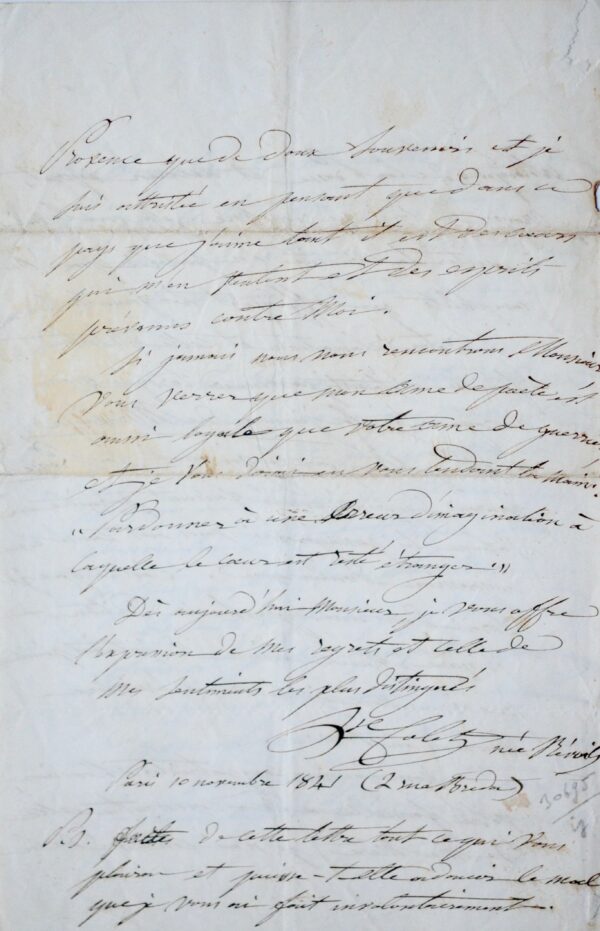 Provence que de doux souvenirs et je
suis attristée en pensant que dans ce
pays que j'aime tant il est des cœurs
qui m'en veulent et des esprits
prévenus contre Moi.
Si jamais nous nous rencontrons Monsieur
vous verrez que mon âme de poète est
aussi loyale que votre âme de guerrier
et je vous dirai en vous tendant la main.
"Pardonnez à une erreur d'imagination à
laquelle le cœur est resté étranger"
Dès aujourd'hui Monsieur je vous offre
l'expression de mes regrets et celle de
mes sentiments les plus distingués
Colet née Révoil
Paris 10 novembre 1841 (2 rue Bréda)
30695
faites de cette lettre tout ce qui vous
plaira et puisse-t-elle adoucir le mal
que j vous ai fait involontairement.